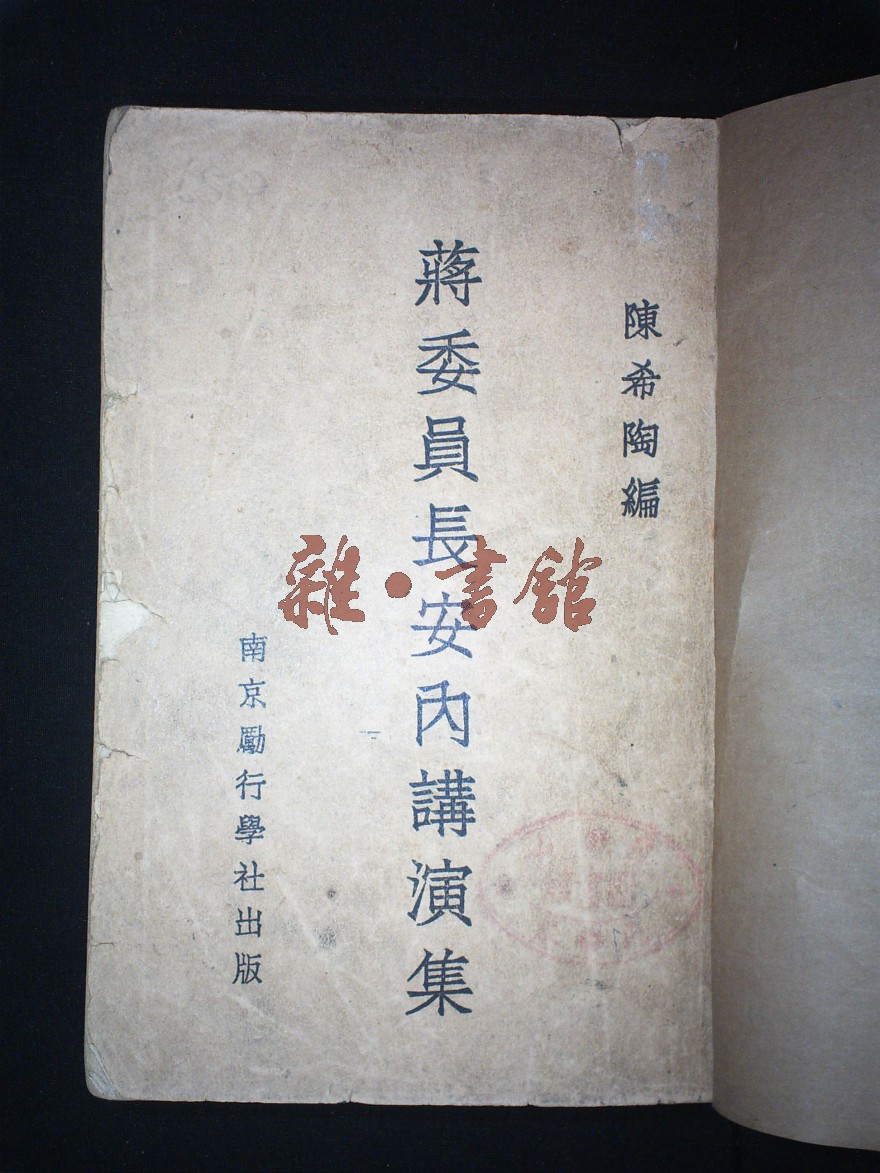 陳希陶編
蔣委員長安內講演集
南京勵行學社出版
雜·書館